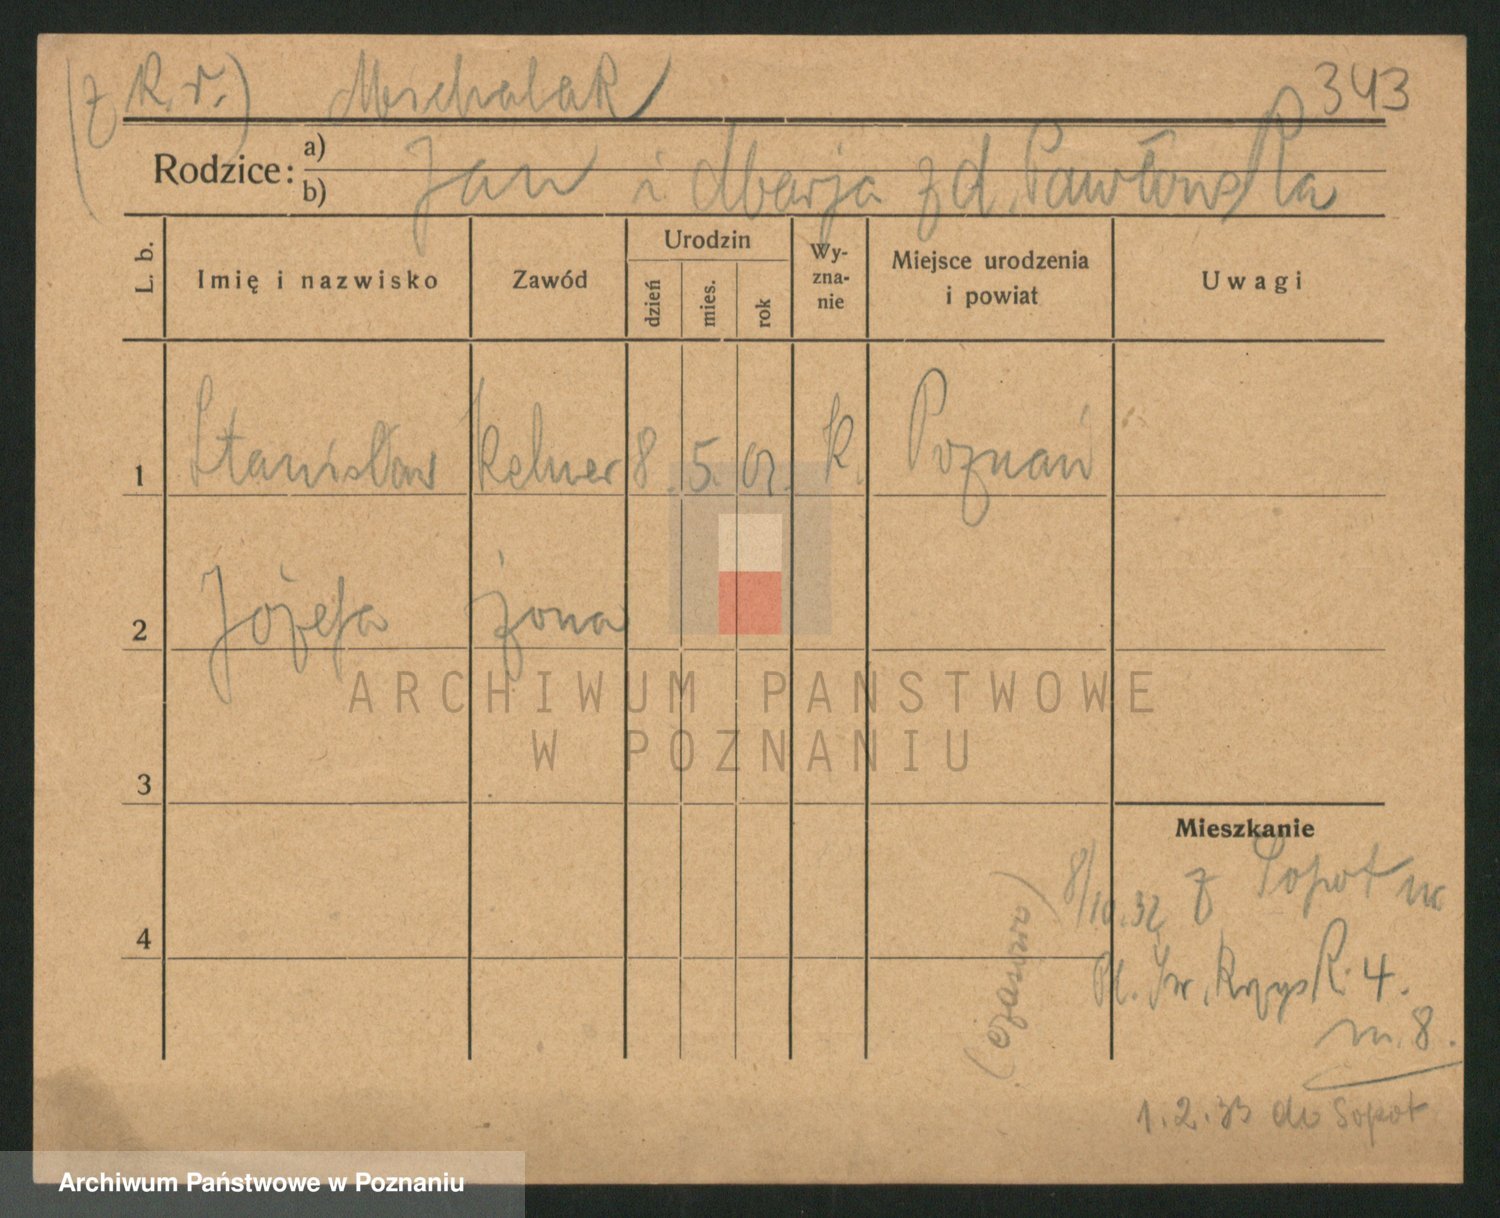 (z k. r.) Michalak 343
Rodzice: a) b) Jan i Marja zd. Pawłowska
L. b. Imię i nazwisko Zawód Urodzin dzień mies. rok Wy-zna-nie Miejsce urodzenia i powiat Uwagi
1 Stanisław kelner 8. 5. 01. k. Poznań
2 Józefa żona
ARCHIWUM PAŃSTWOWE
W POZNANIU
3
Mieszkanie
8/10.32 z Sopot na
4
(czasowo)
Pl. Św. Krzysk. 4.
m. 8.
1.2.33 do Sopot
Archiwum Państwowe w Poznaniu